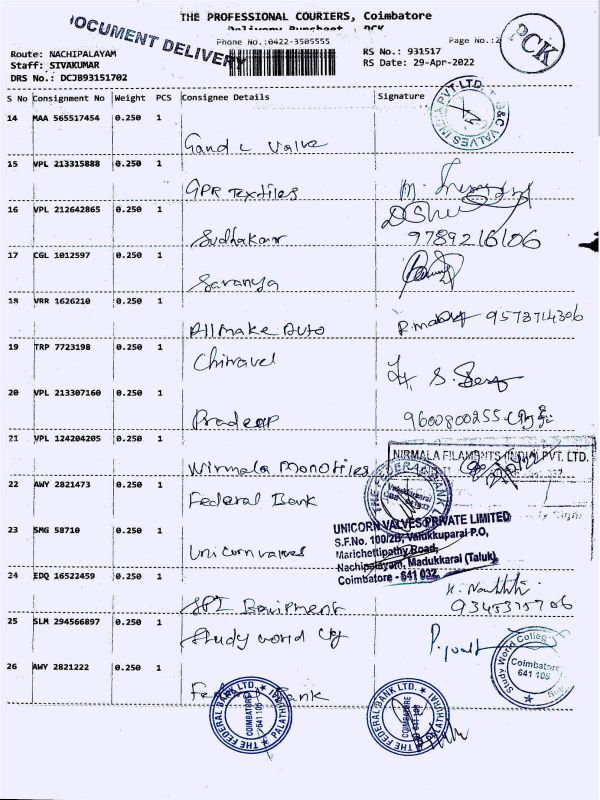 THE PROFESSIONAL COURIERS, Coimbatore
Delivery Runsheet PCK
DOCUMENT DELIVERY
Phone No.:0422-3505555
Page No.:2
PCK
Route: NACHIPALAYAM
RS No.: 931517
Staff: SIVAKUMAR
RS Date: 29-Apr-2022
DRS No.: DCJB93151702
S No Consignment No Weight PCS Consignee Details Signature
14 MAA 565517454 0.250 1
Gand c valve
G&C VALVES INDIA PVT-LTD
15 VPL 213315888 0.250 1
GPR Textiles
16 VPL 212642865 0.250 1
Sudhakar 9789216106
17 CGL 1012597 0.250 1
Saranya
18 VRR 1626210 0.250 1
All make Auto 9578714306
19 TRP 7723198 0.250 1
Chitravel
20 VPL 213307160 0.250 1
Pradeep 9600800255
21 VPL 124204205 0.250 1
Nirmala Monofiles
NIRMALA FILAMENTS (INDIA) PVT. LTD.
22 AWY 2821473 0.250 1
Federal Bank
THE FEDERAL BANK
23 SMG 58710 0.250 1
Unicorn valves
UNICORN VALVES PRIVATE LIMITED
S.F.No. 100/2B, Valukkuparai P.O,
Marichettipathy Road,
Nachipalayam, Madukkarai (Taluk),
Coimbatore - 641 032.
24 EDQ 16522459 0.250 1
Equipment
25 SLM 294566897 0.250 1
Study world Clg
Study World College
Coimbatore
641 105
26 AWY 2821222 0.250 1
Federal Bank
THE FEDERAL BANK LTD. PALATHURAI
COIMBATORE
641 105
THE FEDERAL BANK LTD. PALATHURAI
COIMBATORE
641 105